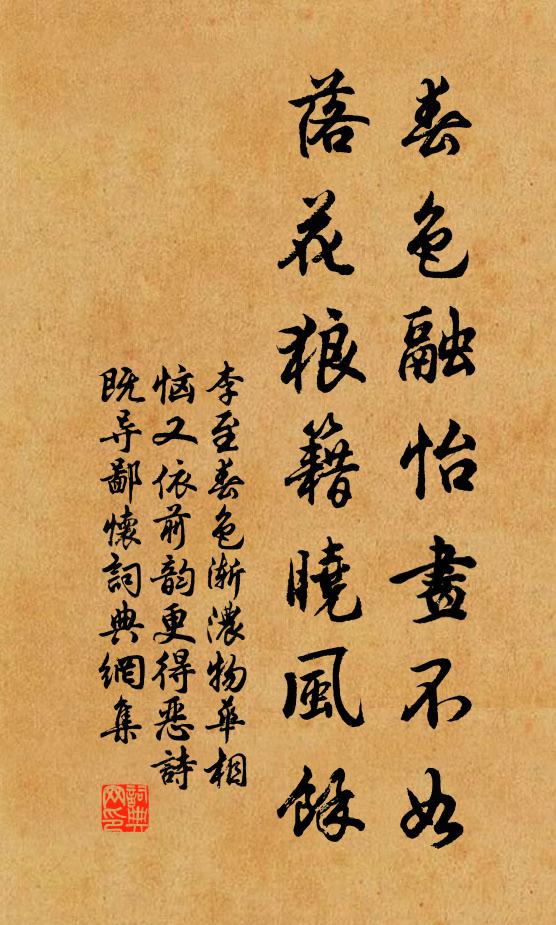 春色融怡畫不如
落花狼籍曉風餘
李至春色漸濃物華相
惱又依前韵更得惡詩
既导鄙懷詞典網集
詞典
网印